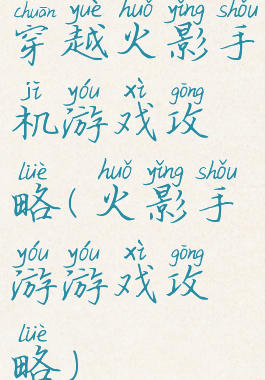 chuān yuè huǒ yǐng shǒu
穿越火影手
jī yóu xì gōng
机游戏攻
lüè huǒ yǐng shǒu
略(火影手
yóu yóu xì gōng
游游戏攻
lüè
略)